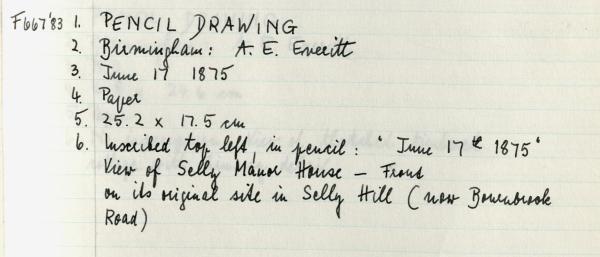 F667'83 1. PENCIL DRAWING
2. Birmingham: A. E. Everitt
3. June 17 1875
4. Paper
5. 25.2 x 17.5 cm
6. Inscribed top left, in pencil: "June 17th 1875"
View of Selly Manor House – Front
on its original site in Selly Hill (now Bournbrook
Road)